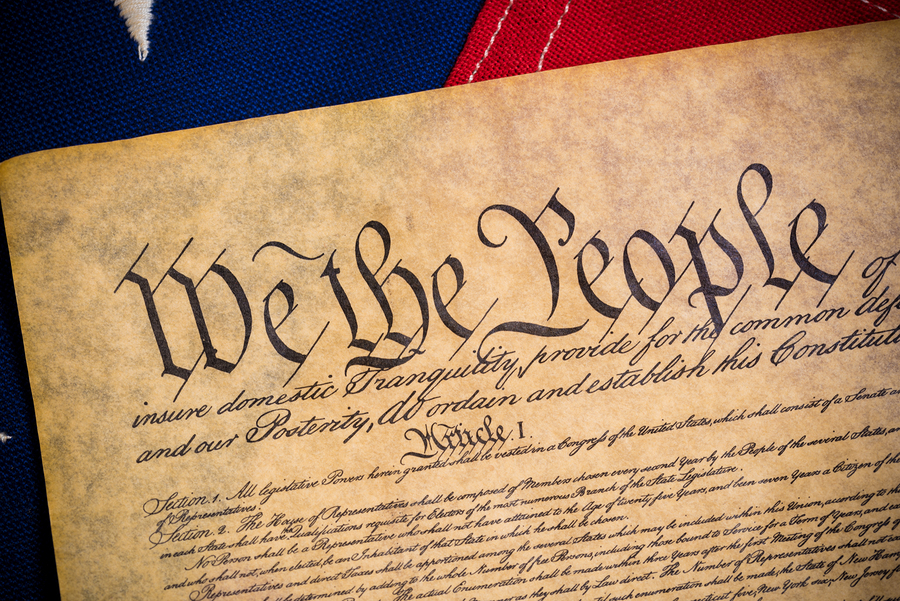 We the People of
insure domestic Tranquility, provide for the common def
and our Posterity, do ordain and establish this Constituti
Article I.
Section. 1. All legislative Powers herein granted shall be vested in a Congress of the United States, which shall consist of a Senate an
of Representatives.
Section. 2. The House of Representatives shall be composed of Members chosen every second Year by the People of the several States, an
in each State shall have the Qualifications requisite for Electors of the most numerous Branch of the State Legislature.
No Person shall be a Representative who shall not have attained to the Age of twenty five Years, and been seven Years a Citizen of the
and who shall not, when elected, be an Inhabitant of that State in which he shall be chosen.
Representatives and direct Taxes shall be apportioned among the several States which may be included within this Union, according to the
shall be determined by adding to the whole Number of free Persons, including those bound to Service for a Term of Years, and
The actual Enumeration shall be made within three Years after the first Meeting of the Congress of
as they shall by Law direct. The Number of Representatives shall not
such enumeration shall be made, the State of New Ham
five, New York six, New Jersey